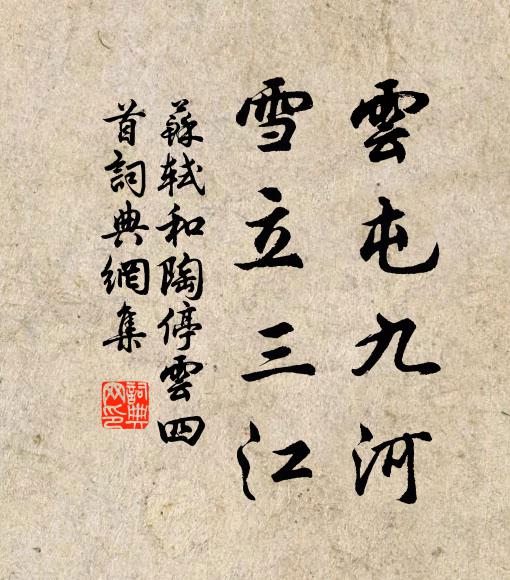 雲屯九河
雪立三江
蘇軾和陶停雲四
首詞典網集
詞典網印